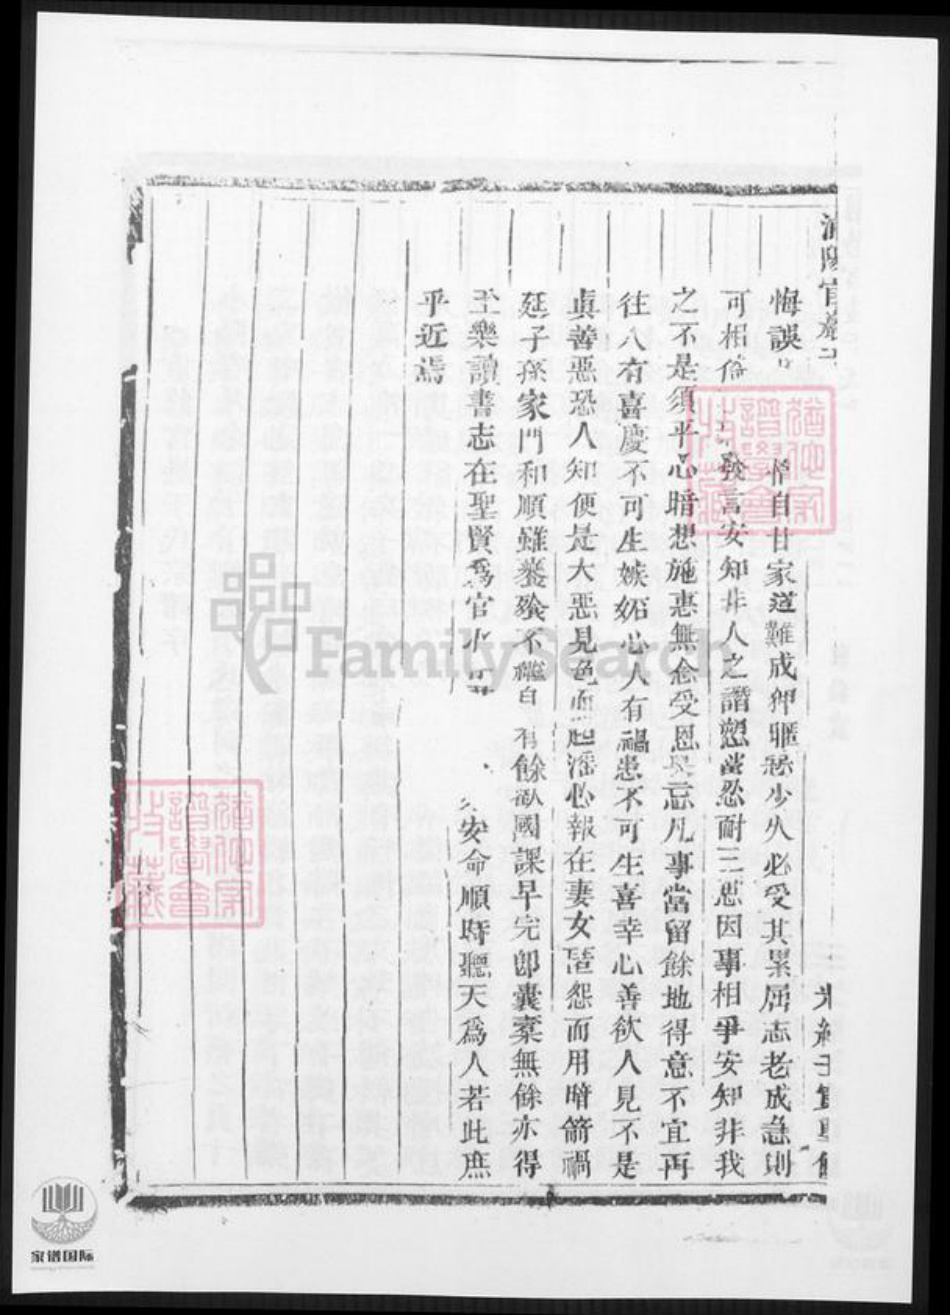 悔誤 惰自甘家道難成狎暱惡少久必受其累屈志老成急則
可相倚 發言安知非人之譖愬當忍耐三思因事相爭安知非我
之不是須平心暗想施惠無念受恩莫忘凡事當留餘地得意不宜再
往人有喜慶不可生嫉妬心人有禍患不可生喜幸心善欲人見不是
眞善惡恐人知便是大惡見色而起淫心報在妻女匿怨而用暗箭禍
延子孫家門和順雖饔飱不繼自有餘歡國課早完卽囊橐無餘亦得
至樂讀書志在聖賢爲官 安命順時聽天爲人若此庶
乎近焉
光緒 寅重修
FamilySearch
家谱国际